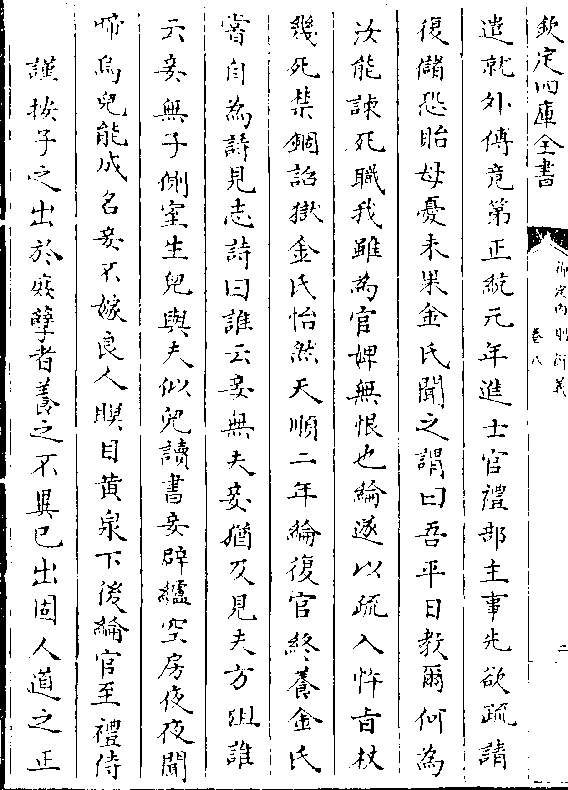 欽定四庫全書
御定內則衍義
卷八
二
遣就外傅竟第正統元年進士官禮部主事先欲疏請
復儲恐貽母憂未果金氏聞之謂曰吾平日教爾何為
汝能諫死職我雖為官婢無恨也綸遂以疏入忤旨杖
幾死禁錮詔獄金氏怡然天順二年綸復官終養金氏
嘗自為詩見志詩曰誰云妾無夫妾猶及見夫方徂誰
云妾無子側室生兒與夫似兒讀書妾辟纑空房夜夜聞
啼烏兒能成名妾不嫁良人瞑目黃泉下後綸官至禮侍
謹按子之出於庶孽者養之不異己出固人道之正